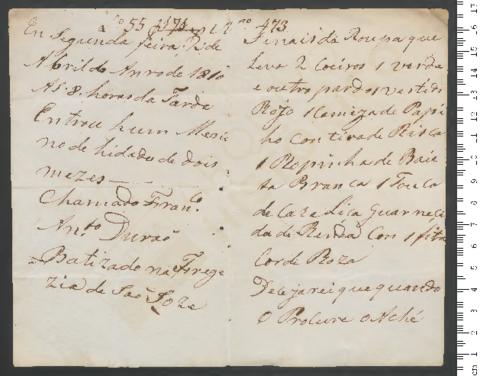 a fo 55 nº 173
Lº 1º nº 473
Em Segunda feira 13 de
Abril do Anno de 1810
As 8 horas da Tarde
Entrou hum Meni
no de hidade de dois
mezes
Chamado Franco
Anto Durao
Batizado na Frege
zia de Sao Joze
Sinais da Roupa que
Leva 2 Coeiros 1 verde
e outro pardo 1 vestido
Roxo 1 Camiza de Pani
ho Con tira de Risca
1 Ropinha de Baie
ta Branca 1 Touca
de Caza Liza Guarneci
da de Renda Con 1 fita
Cor de Roza
Dezejarei que quando
o Procure o Aché